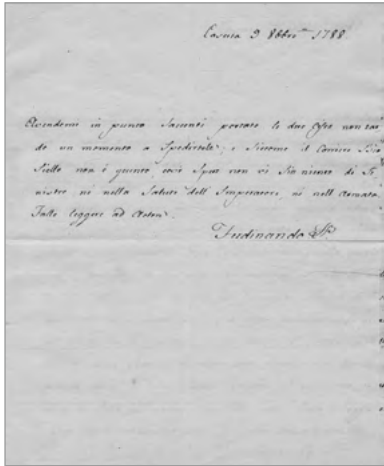 Caserta 9 8bre 1788.
Avendomi in punto Sacenti portate le due Oste non tar
do un momento a Spedirtele; e siccome il Corriere
non è giunto, così Spero non vi Sia niente di Si,,
nistro, ne nella Salute dell'Imperatore, ne nell'Armata.
Fallo leggere ad Acton.
Ferdinando